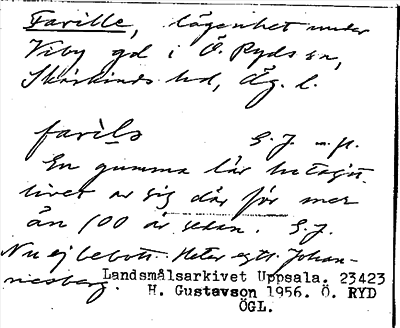 Farille, lägenhet under
Viby gd i Ö. Ryds sn,
Skärkinds hd, Ög. l.
farils G. J. m. fl.
En gumma lär ha tagit
livet av sig där för mer
än 100 år sedan. G. J.
Nu ej bebott. Heter egtl. Johan-
nesberg.
Landsmålsarkivet Uppsala. 23423
H. Gustavson 1956. Ö. RYD
ÖGL.